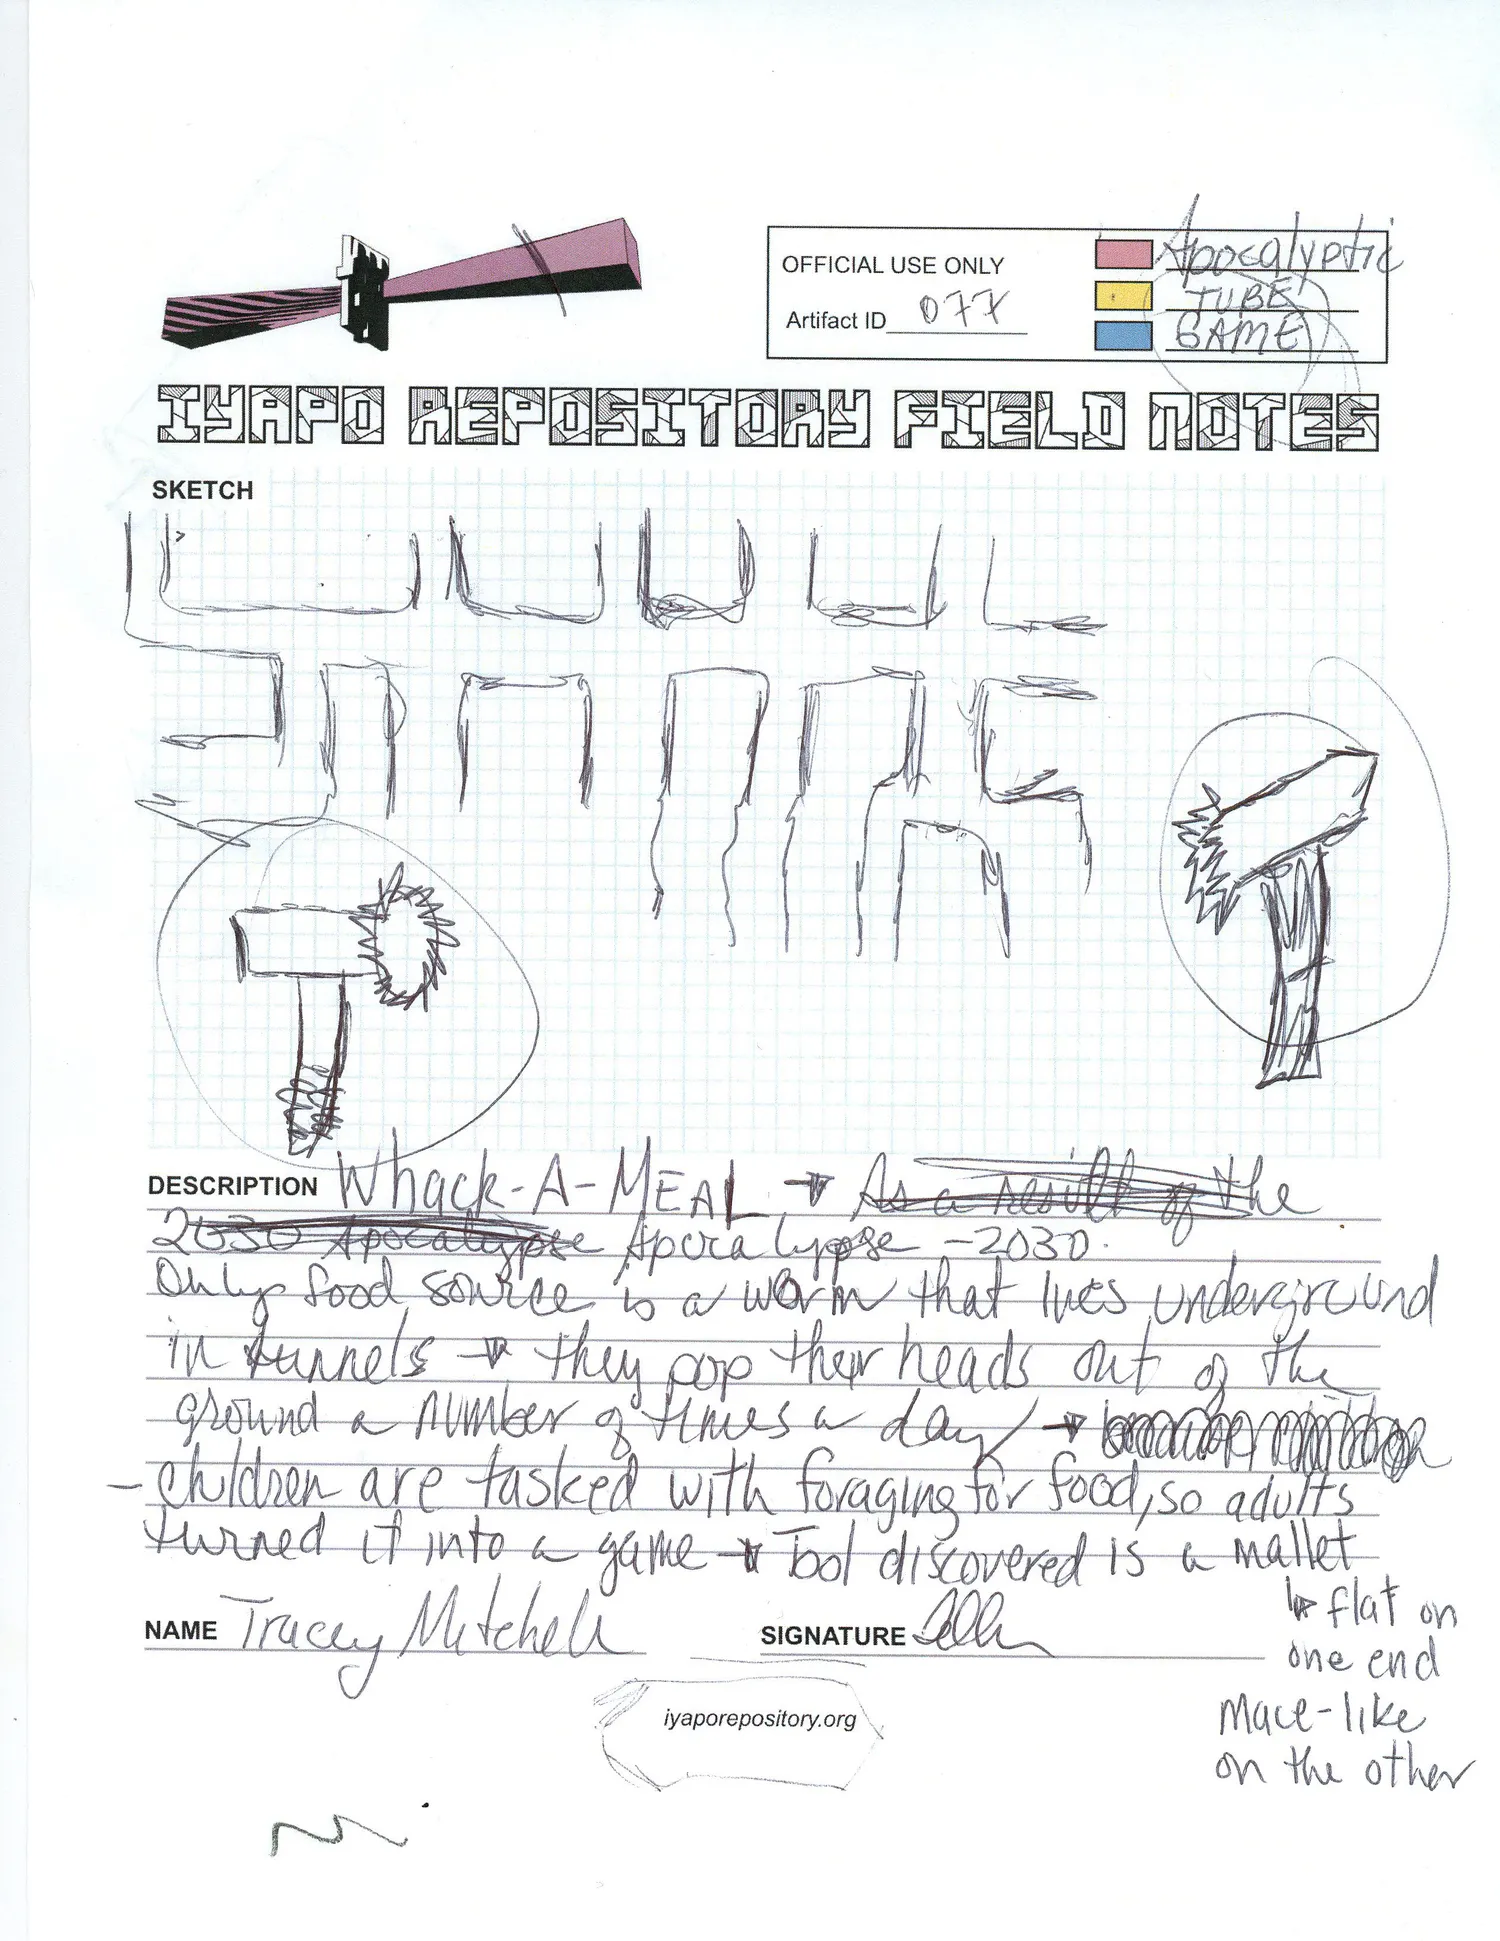 OFFICIAL USE ONLY
Artifact ID 077
Apocalyptic
TUBE
GAME
IYAPO REPOSITORY FIELD NOTES
SKETCH
DESCRIPTION Whack-A-MEAL → As a result of the
2030 Apocalypse Apocalypse - 2030.
Only food source is a worm that lives underground
in tunnels → they pop their heads out of the
ground a number of times a day →
- children are tasked with foraging for food, so adults
turned it into a game → Tool discovered is a mallet
↳ flat on
one end
mace-like
on the other
NAME Tracey Mitchell
SIGNATURE
iyaporepository.org